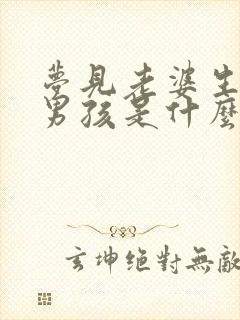 夢見老婆生
男孩是什麼
玄坤絕對無敵